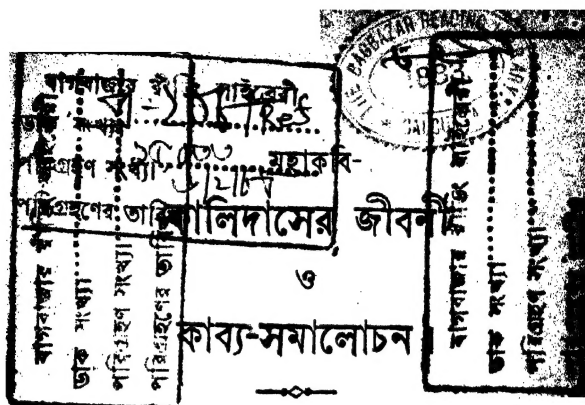 THE BAGBAZAR READING
বাগবাজার রীডিং লাইব্রেরী
ডাক সংখ্যা
পরিগ্রহণ সংখ্যা
মহাকবি-
পরিগ্রহণের তারিখ
কালিদাসের জীবনী
ও
কাব্য-সমালোচন
বাগবাজার রীডিং লাইব্রেরী
ডাক সংখ্যা
পরিগ্রহণ সংখ্যা
পরিগ্রহণের তারিখ
বাগবাজার রীডিং লাইব্রেরী
ডাক সংখ্যা
পরিগ্রহণ সংখ্যা